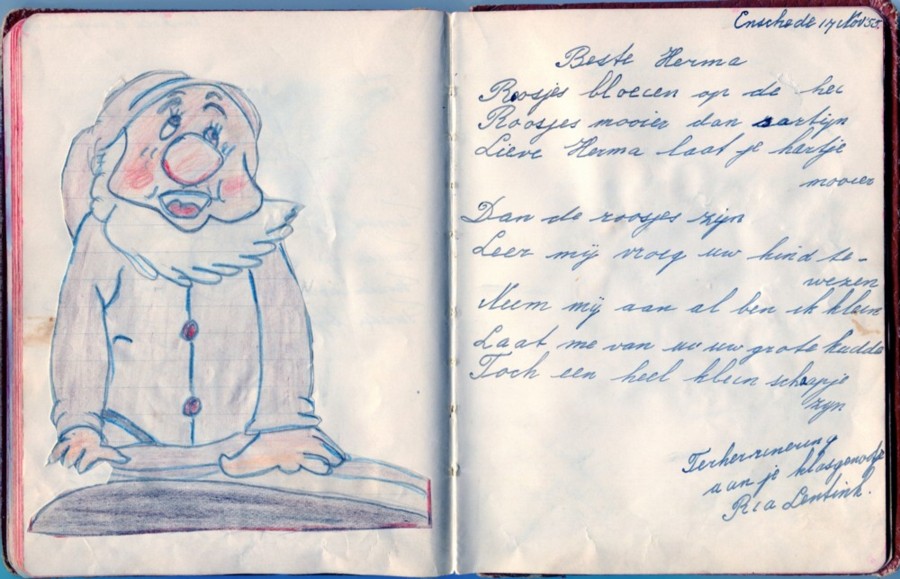 Enschede 17 Nov 55.
Beste Herma
Roosjes bloeien op de hei
Roosjes mooier dan sartijn
Lieve Herma laat je hartje
mooier
Dan de roosjes zijn
Leer mij vroeg uw kind te-
wezen
Neem mij aan al ben ik klein
Laat me van uw uw grote kudde
Toch een heel klein schaapje
zijn
Terherinnering
aan je klasgenootje
Ria Lentink.